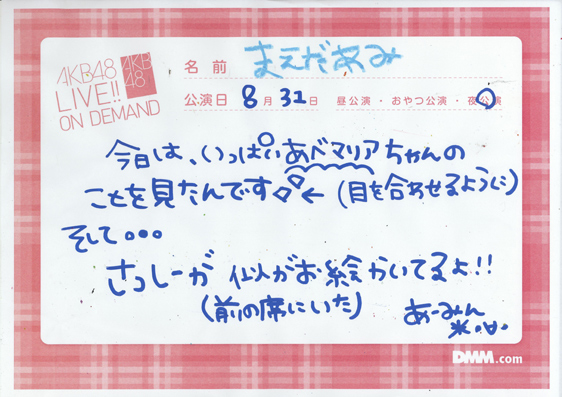 AKB48
LIVE!!
ON DEMAND
AKB
48
名前 まえだあみ
公演日 8月31日 昼公演・おやつ公演・夜公演
今日は、いっぱいあべマリアちゃんの
ことを見たんです ← (目を合わせるように)
そして。。。
さっしーが 似がお絵かいてるよ!!
(前の席にいた)
あーみん
DMM.com